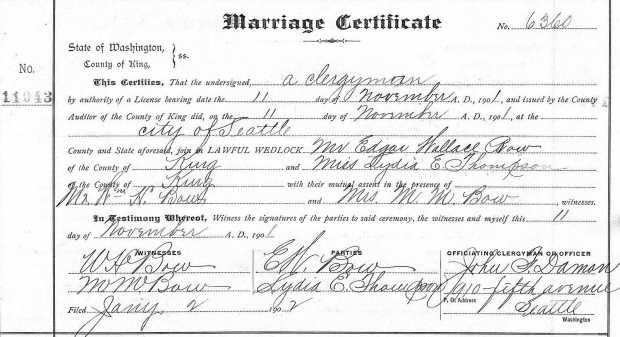 Marriage Certificate
No. 6360
State of Washington,
County of King,
} ss.
No.
11043
This Certifies, That the undersigned, a clergyman
by authority of a License bearing date the 11 day of November A. D., 1901, and issued by the County
Auditor of the County of King did, on the 11 day of November A. D., 1901, at the
city of Seattle
County and State aforesaid, join in LAWFUL WEDLOCK Mr Edgar Wallace Bow
of the County of King and Miss Lydia E. Thompson
of the County of King with their mutual assent in the presence of
Mr. Wm H. Bow and Mrs. M. M. Bow, witnesses.
In Testimony Whereof, Witness the signatures of the parties to said ceremony, the witnesses and myself this 11
day of November A. D., 1901
WITNESSES PARTIES OFFICIATING CLERGYMAN OR OFFICER
W H Bow E W. Bow John F. Damon
M M Bow Lydia E. Thompson P. O. Address 910-fifth avenue
Filed Jany 2 1902 Seattle
Washington